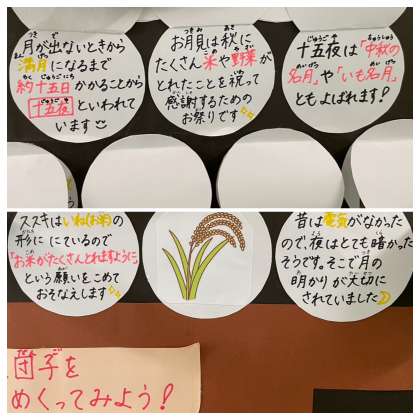 月が出ないときから
満月になるまで
約十五日かかることから
十五夜といわれて
います
お月見は秋に
たくさん米や野菜が
とれたことを祝って
感謝するための
お祭りです
十五夜は「中秋の
名月」や「いも名月」
ともよばれます!
ススキはいね(お米)の
形ににているので
「お米がたくさんとれますように」
という願いをこめて
おそなえします
昔は電気がなかった
ので、夜はとても暗かった
そうです。そこで月の
明かりが大切に
されていました
団子を
めくってみよう!